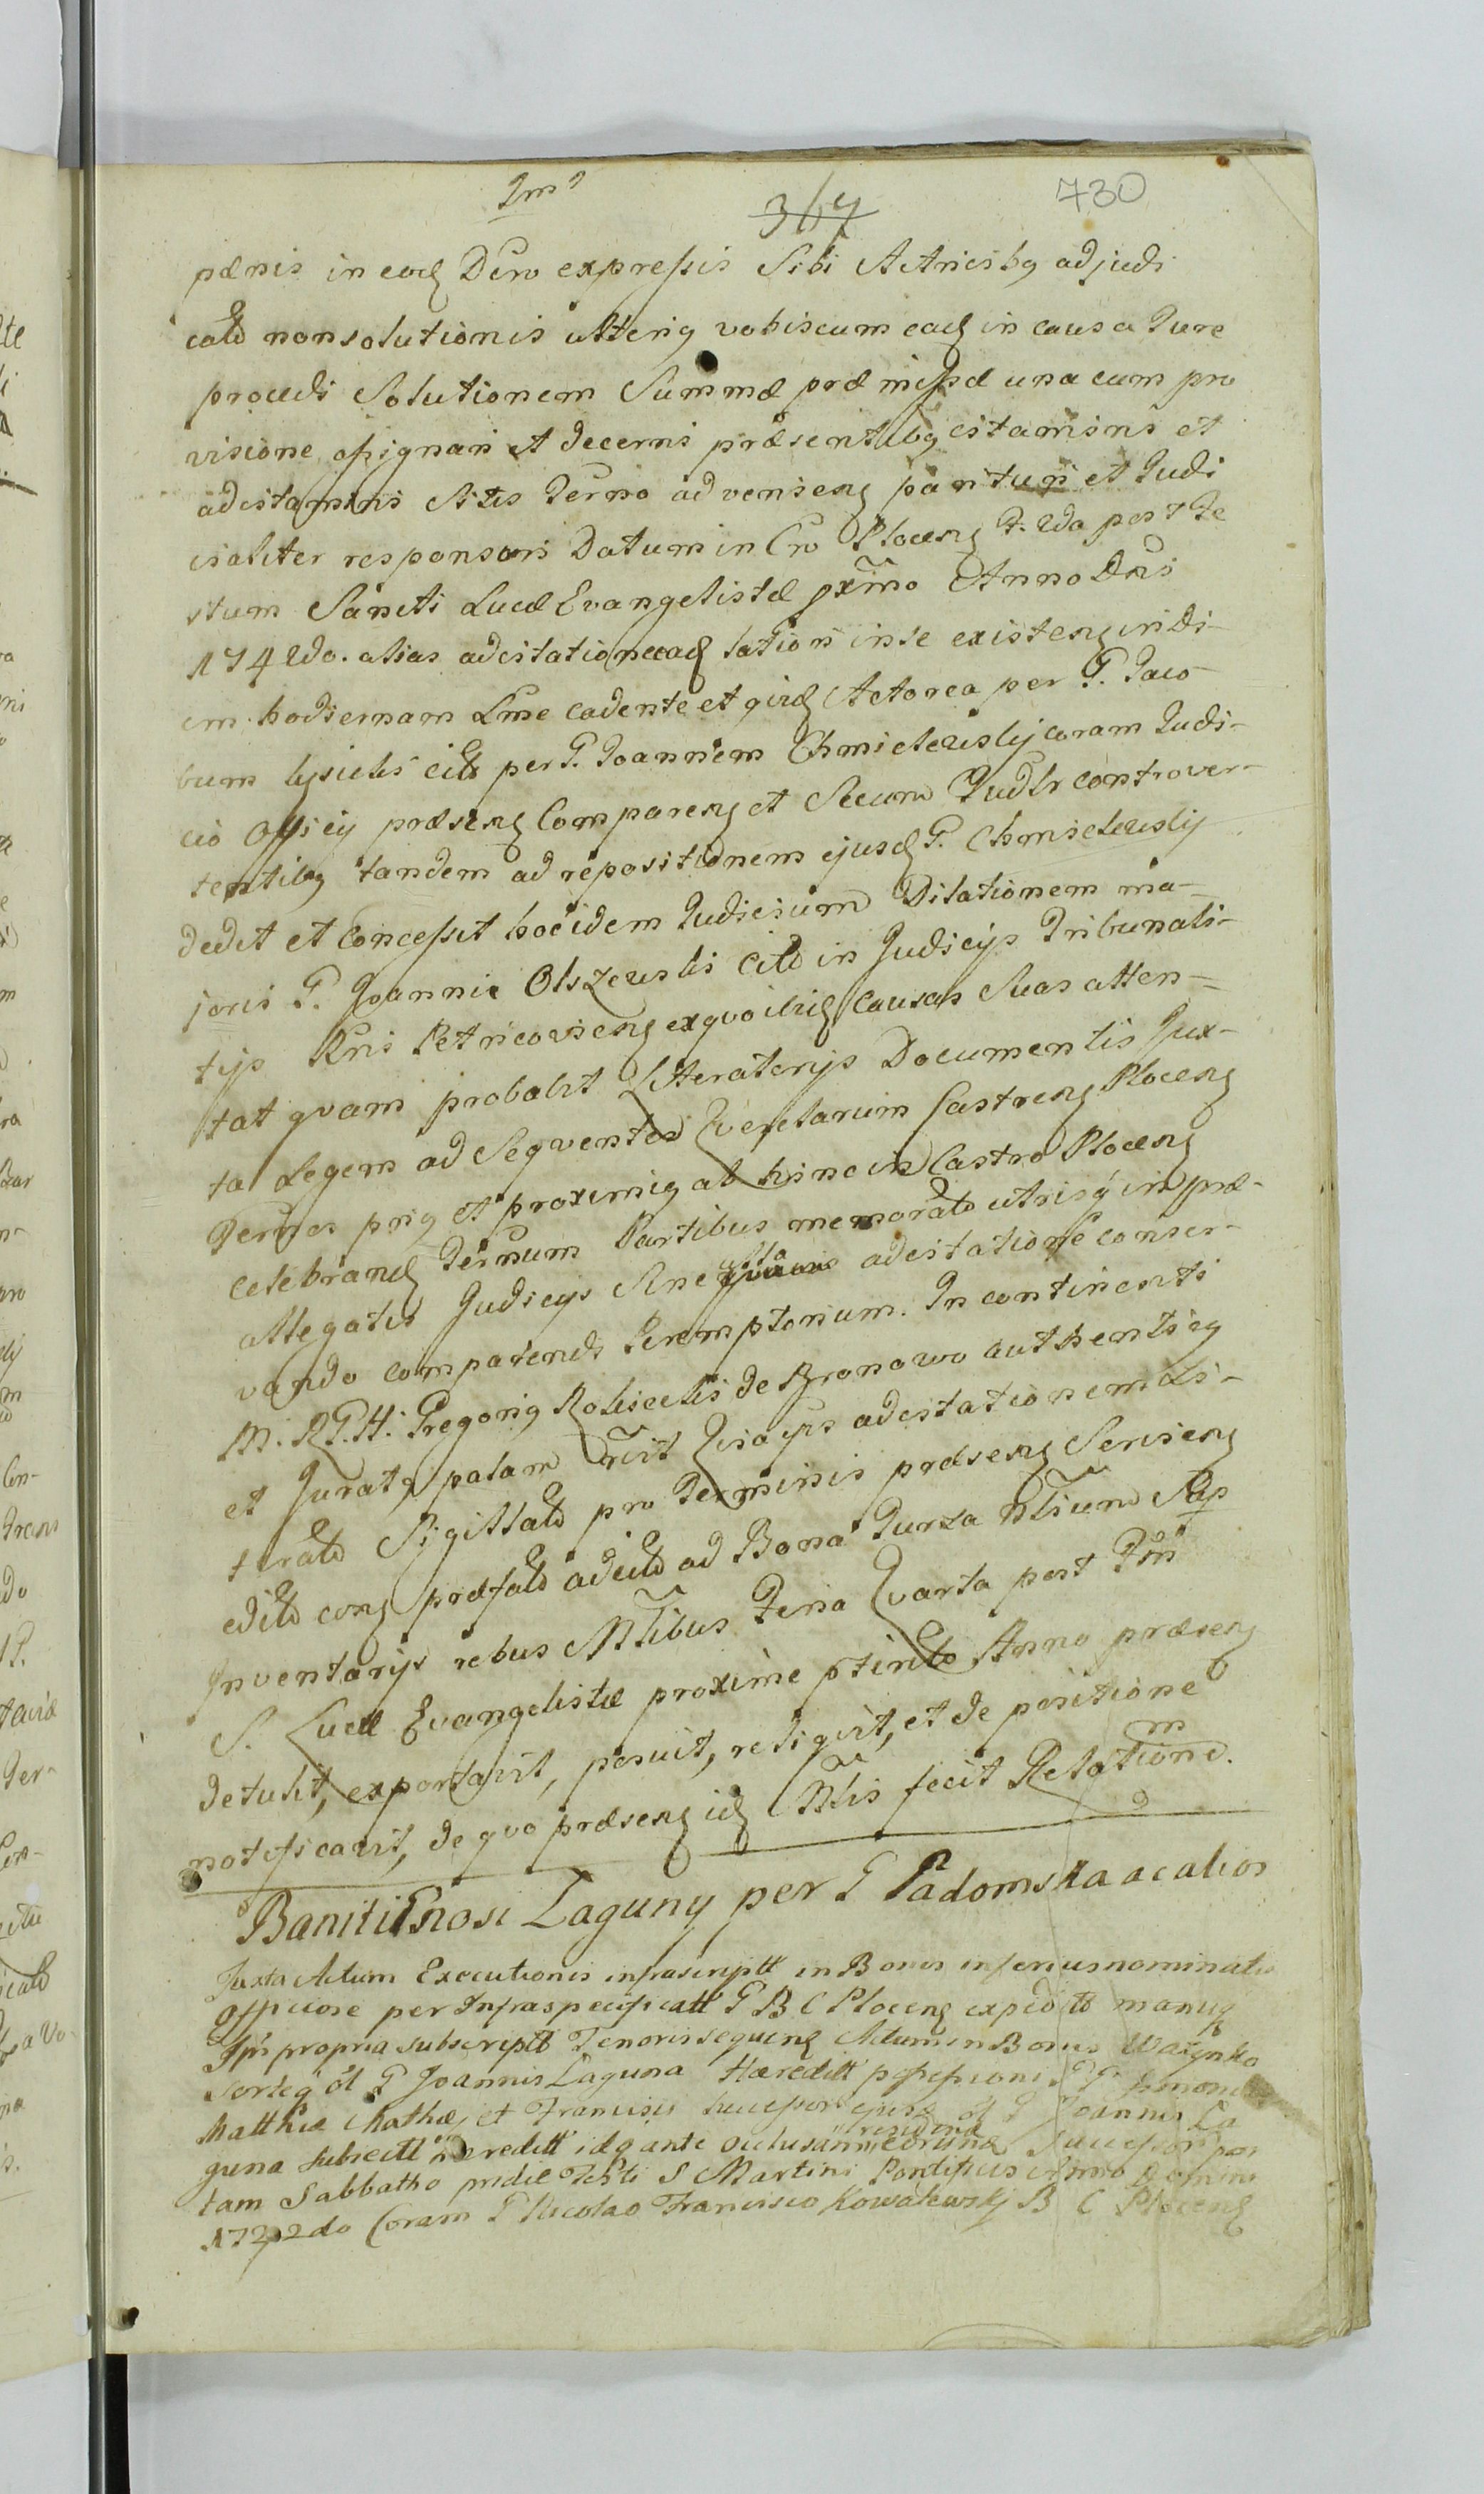 2m?
367
730
pænis in eod Dcro expressis Sibi Actricibq adjudi
cato non solutionis ulteriq vobiscum ead in causa Jure
procedi Solutionem Summæ præmissæ una cum pro
visione assignari et decerni præsentibq citamini et
adcitamini Sitis Termo advenieng parituri et Judi
cialiter responsuri Datum in Cro Ploceng F. 2da post Fe
stum Sancti Lucæ Evangelistæ pxmo Anno Dni
1742do. alias adcitatione ead lation in se existeng in di
em hodiernam Lme cadente et qird Actorea per G. Jaco
bum citt per G. Joannem Chmielewskij coram Judi-
cio Officij præseng Compareng et Secum Judlr controver-
tentibq tandem ad repositionem ejusd G. Chmielewskij
dedit et Concessit hoc idem Judicium Dilationem ma-
joris G. Joannis Olszewski Citto in Judicijs Tribunali-
tijs Rni Petricovieng ex quo ibid Causas Suas atten-
tat quam probabit Literatorijs Documentis Jux-
ta Legem ad Sequentes Querelarum Castreng Ploceng
Termos priq et proximiq ab hinc in Castro Ploceng
celebrand Ternum Partibus memorato utrisq in præ-
allegatis Judicijs Sine ulla adcitatione conser-
vando comparendi Peremptorium. In continenti
M. R. G. H. Gregoriq Rolisecki de Bronowo authenticq
et Juratq palam rcvit Quia ijs adcitationem Li-
terato Sigillato pro Terminis præseng Serieng
edito cong præfato adcito ad Bona Turza Ntium Sup
Inventarijs rebus Mtibus Feria Quarta post Fm
S. Lucæ Evangelistæ proxime ptirito Anno præseng
detulit, exportavit, posuit, reliquit, et de positione
notificavit, de quo præseng id Mtis fecit Relationem.
Baniti Gnosi Laguny per G Padomska ac alios
Juxta Actum Executionis infrascriptt in Bonis inferius nominatis
Officiose per Infraspecificatt G B C Ploceng expedito manuq
Ipi propria subscriptt Tenoris sequeng Actum in Bonis Wazynko
Sorteq ol G Joannis Laguna Hæreditt possessionis G G Simonis
Matthiæ Mathæ, et Francisci Successor ejusd ol G Joannis La
guna Subsectt Hæreditt idq ante occlusam residend Successor por
tam Sabbatho pridie Festi S Martini Pontificis Anno Domini
1722do Coram G Nicolao Francisco Kowalewskj B C Ploceng